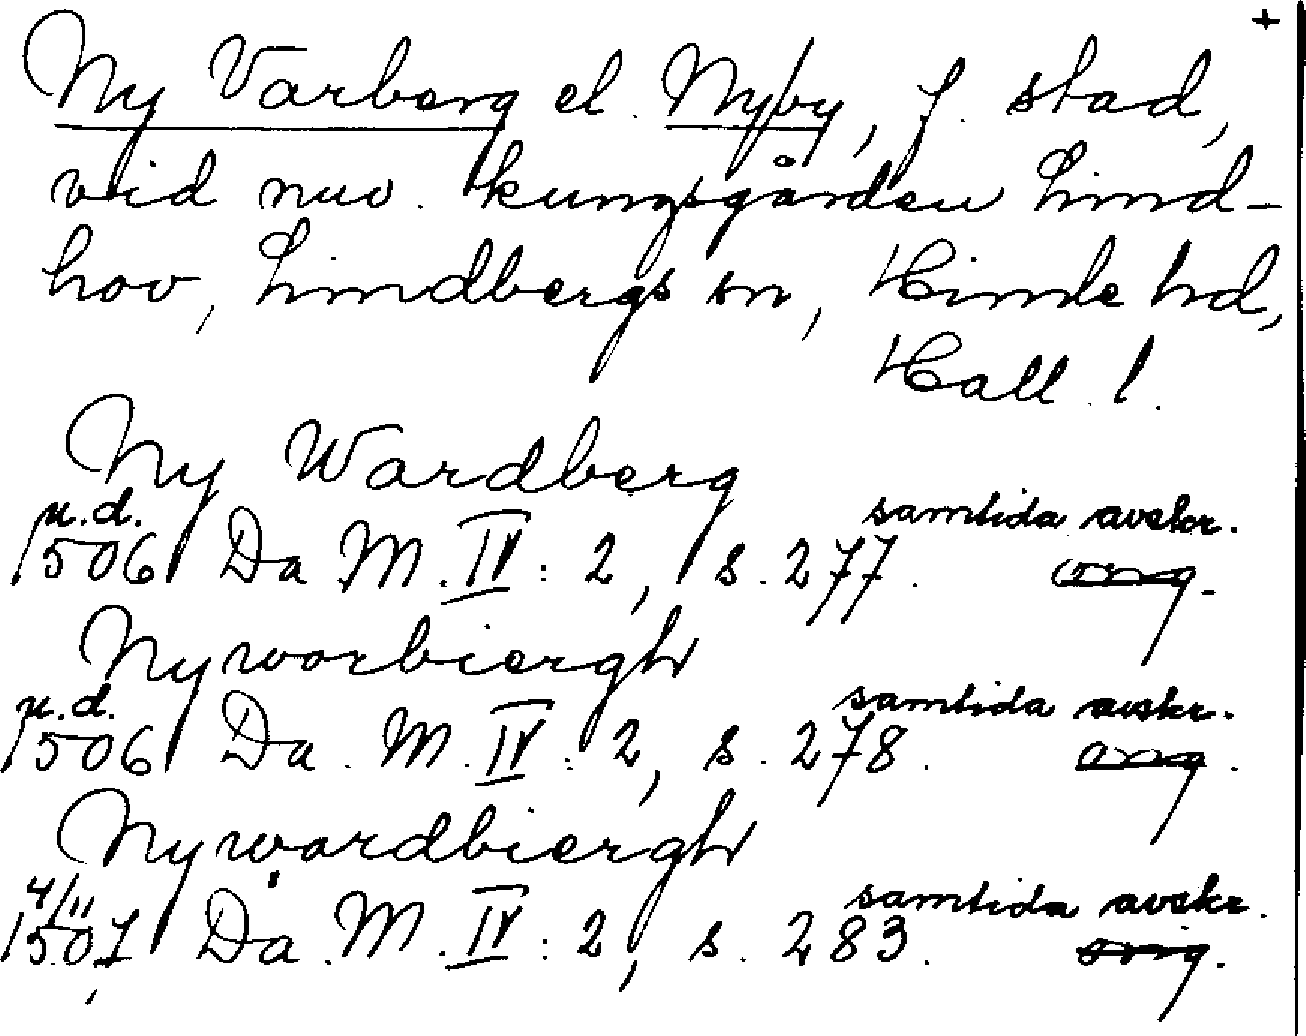 +
Ny Varberg el. Nyby, f. stad,
vid nuv. kungsgården Lind-
hov, Lindbergs sn, Himle hd,
Hall. l.
Ny Wardberg
u.d. samtida avskr.
1506 Da M. IV: 2, s. 277. orig.
Nyworbiergh
u.d. samtida avskr.
1506 Da. M. IV: 2, s. 278. orig.
Nywardbiergh
4/11 samtida avskr.
1507 Da. M. IV: 2, s. 283. orig.